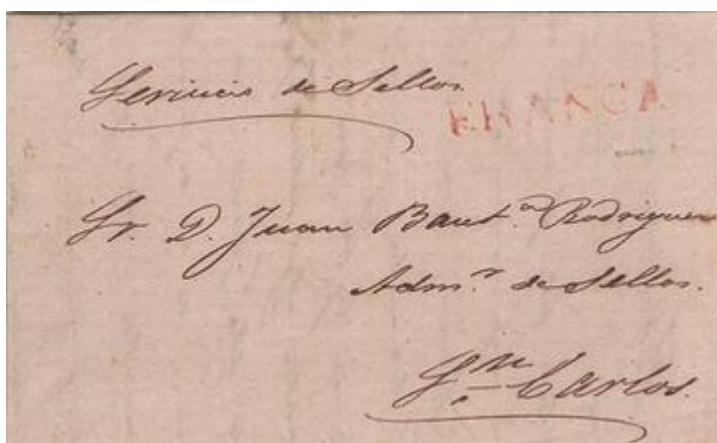 Servicio de Sellos.
FRANCA
Sr. D. Juan Baut.ª Rodriguez
Adm.r de Sellos.
Sn. Carlos.